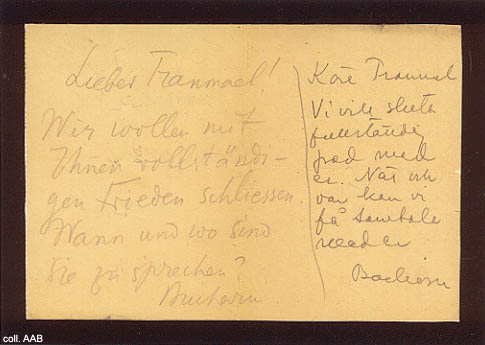 Lieber Tranmael!
Wir wollen mit
Ihnen vollständi-
gen Frieden schliessen.
Wann und wo sind
Sie zu sprechen?
Bucharin.
Kære Tranmæl
Vi vill sluta
fullständig
fred med
er. När och
var kan vi
få samtala
med er
Bucharin
coll. AAB